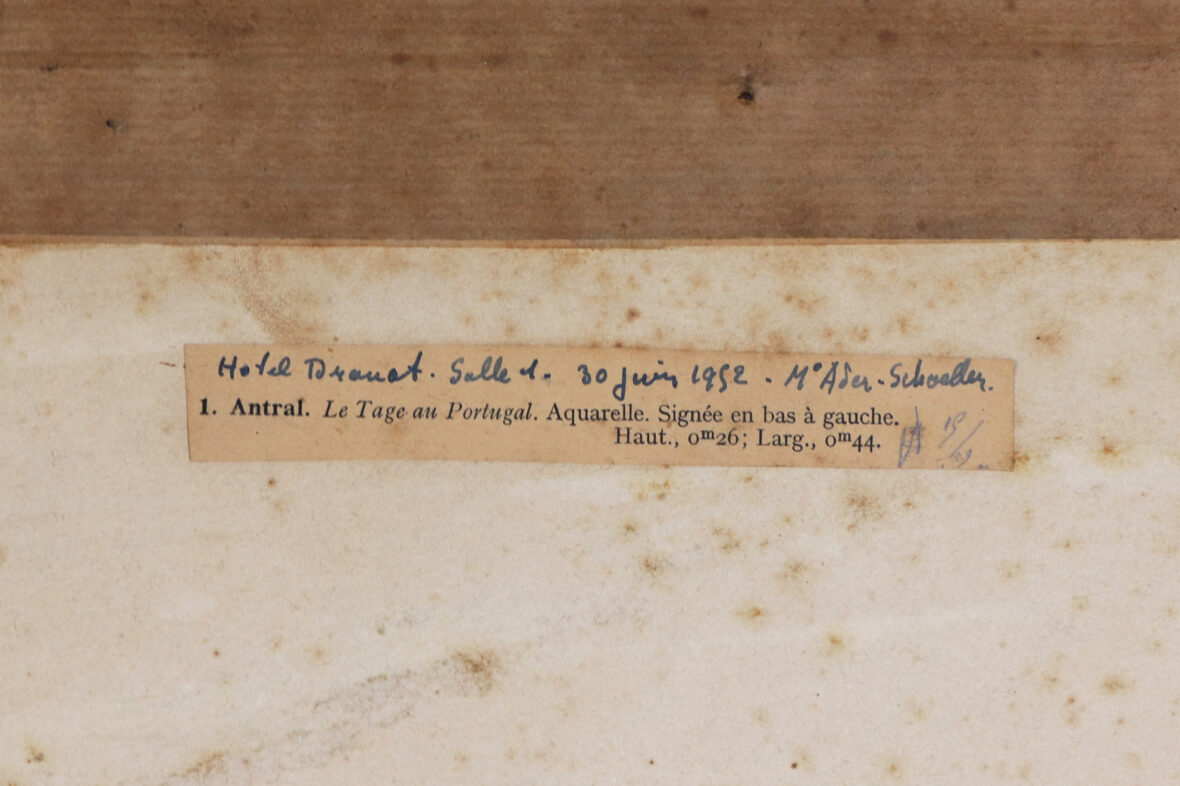 Hotel Drouot. Salle 1. 30 juin 1952. Me Ader-Schoeller.
1. Antral. Le Tage au Portugal. Aquarelle. Signée en bas à gauche.
Haut., 0m26; Larg., 0m44.